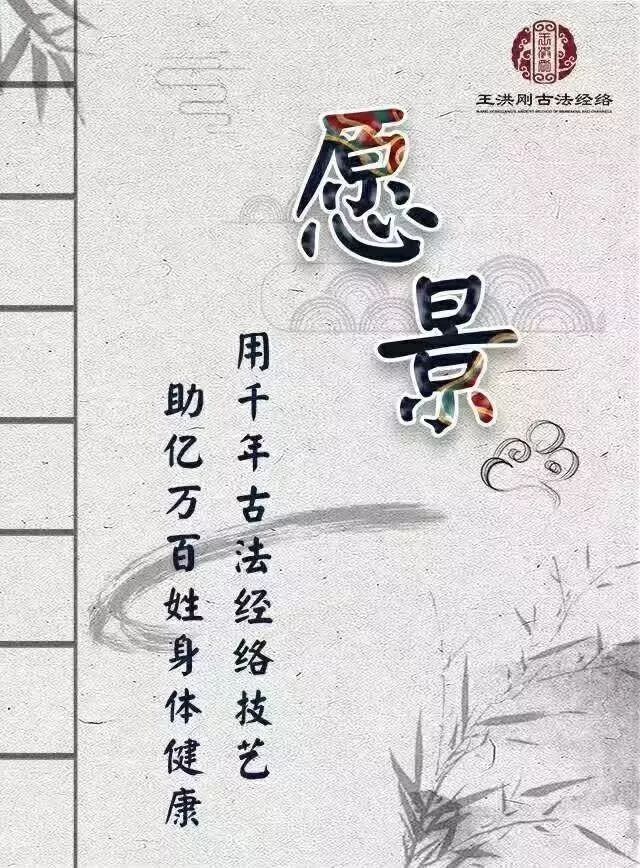 王洪刚古法经络
愿景
用千年古法经络技艺
助亿万百姓身体健康